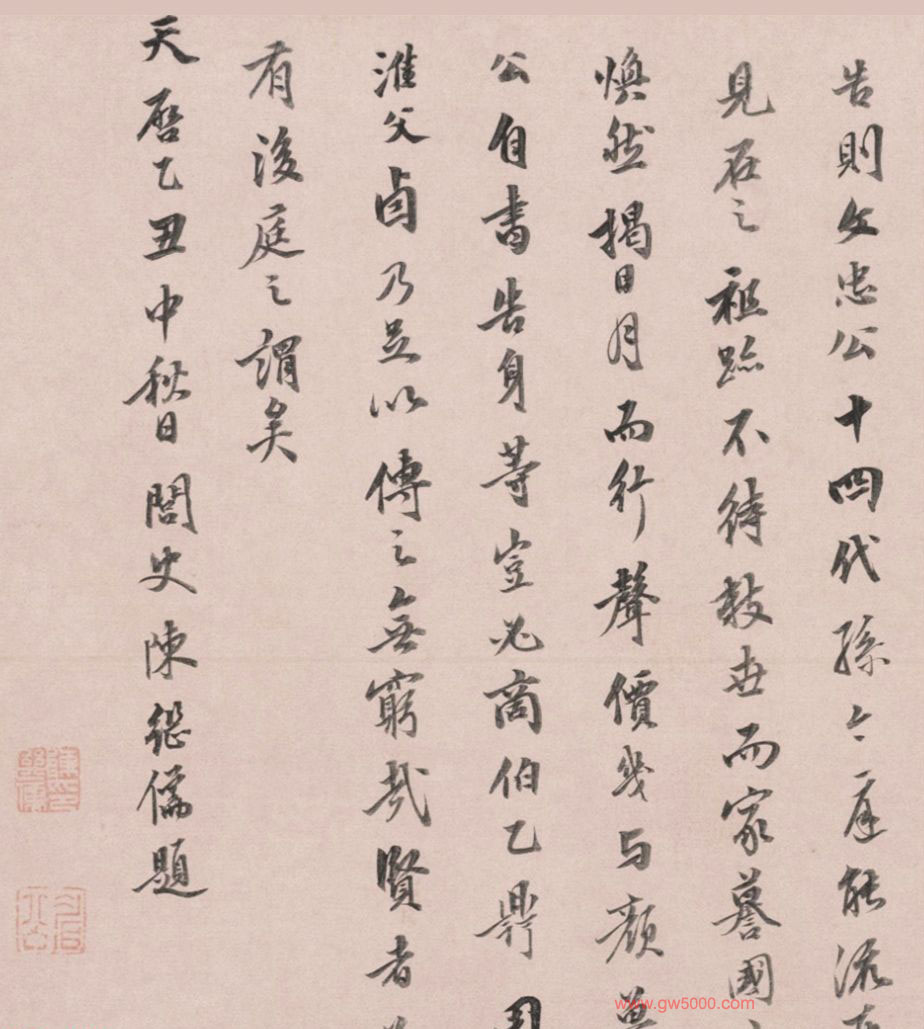 告則文忠公十四代孫今一庭能流
見在之祖跡不待數世而家譽國
煥然揭日月而行聲價幾与顏魯
公自書告身等豈必商伯乙鼎周
淮父卣乃足以傳之無窮哉賢者
有後庭之謂矣
天啓乙丑中秋日閣史陳繼儒題
www.gw5000.com